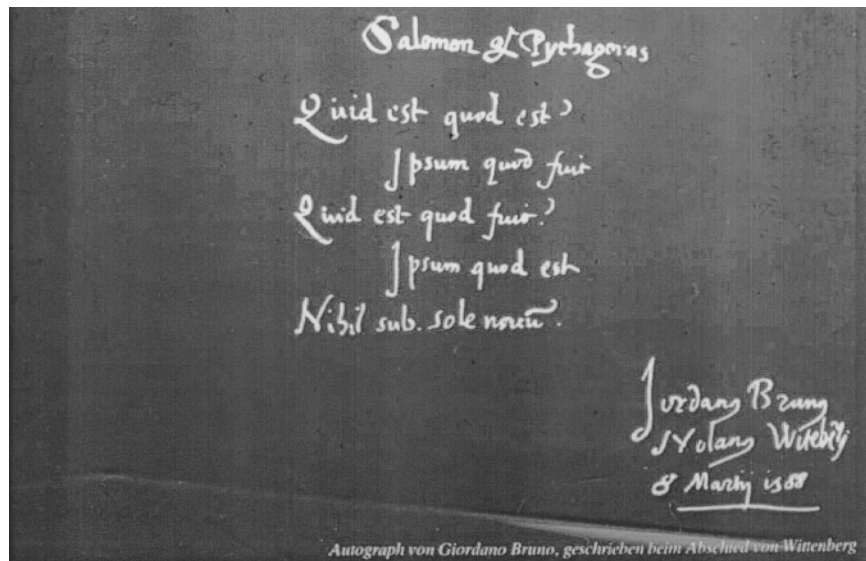 Salomon et Pythagoras
Quid est quod est?
Ipsum quod fuit
Quid est quod fuit?
Ipsum quod est
Nihil sub. sole nouū.
Iordanꝯ Brunꝯ
Nolanꝯ Witebꝫ
8 Martij 1588
Autograph von Giordano Bruno, geschrieben beim Abschied von Wittenberg